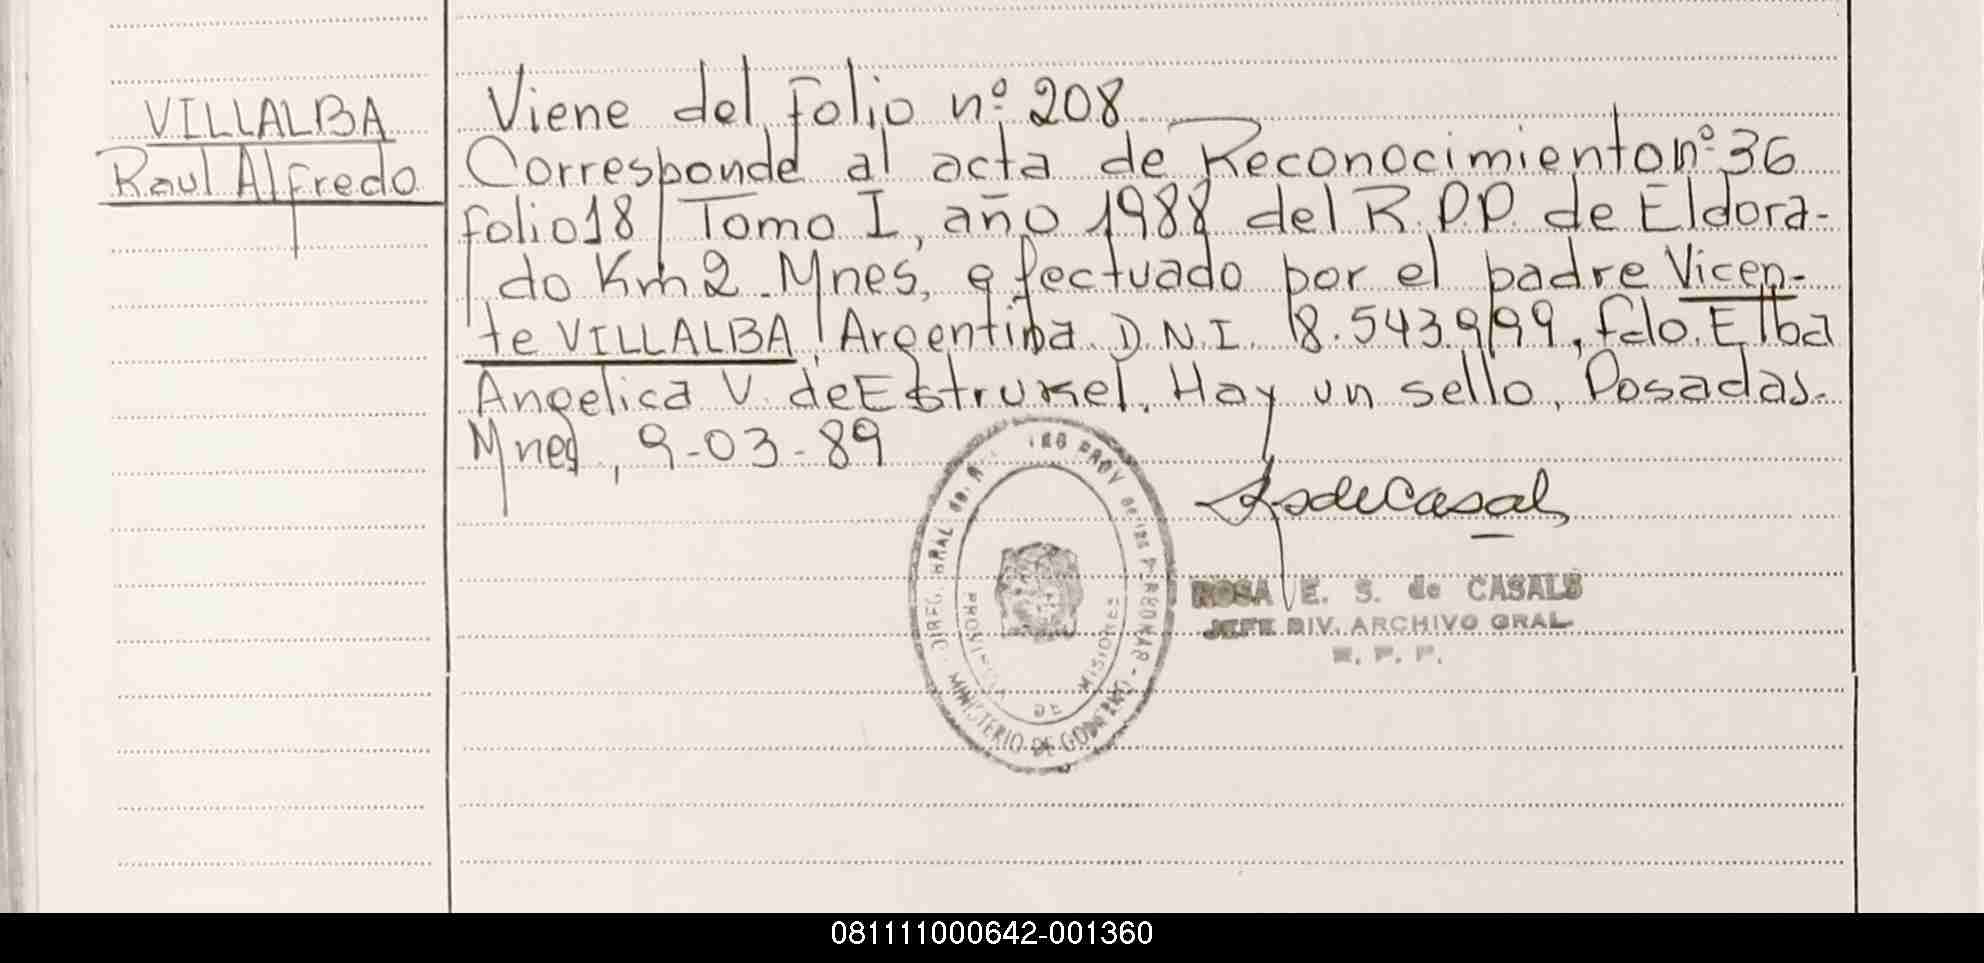 VILLALBA
Raul Alfredo
Viene del folio nº 208
Corresponde al acta de Reconocimiento nº 36
folio 18 Tomo I, año 1988 del R.P.P. de Eldora-
do Km 2 - Mnes, efectuado por el padre Vicen-
te VILLALBA, Argentina. D.N.I. 18.543.999, fdo. Elba
Angelica V. de Estrukel. Hay un sello. Posadas-
Mnes, 9-03-89
ROSA E. S. de CASALS
JEFE DIV. ARCHIVO GRAL
R. P. P.
MINISTERIO DE GOBIERNO
DE MISIONES
081111000642-001360